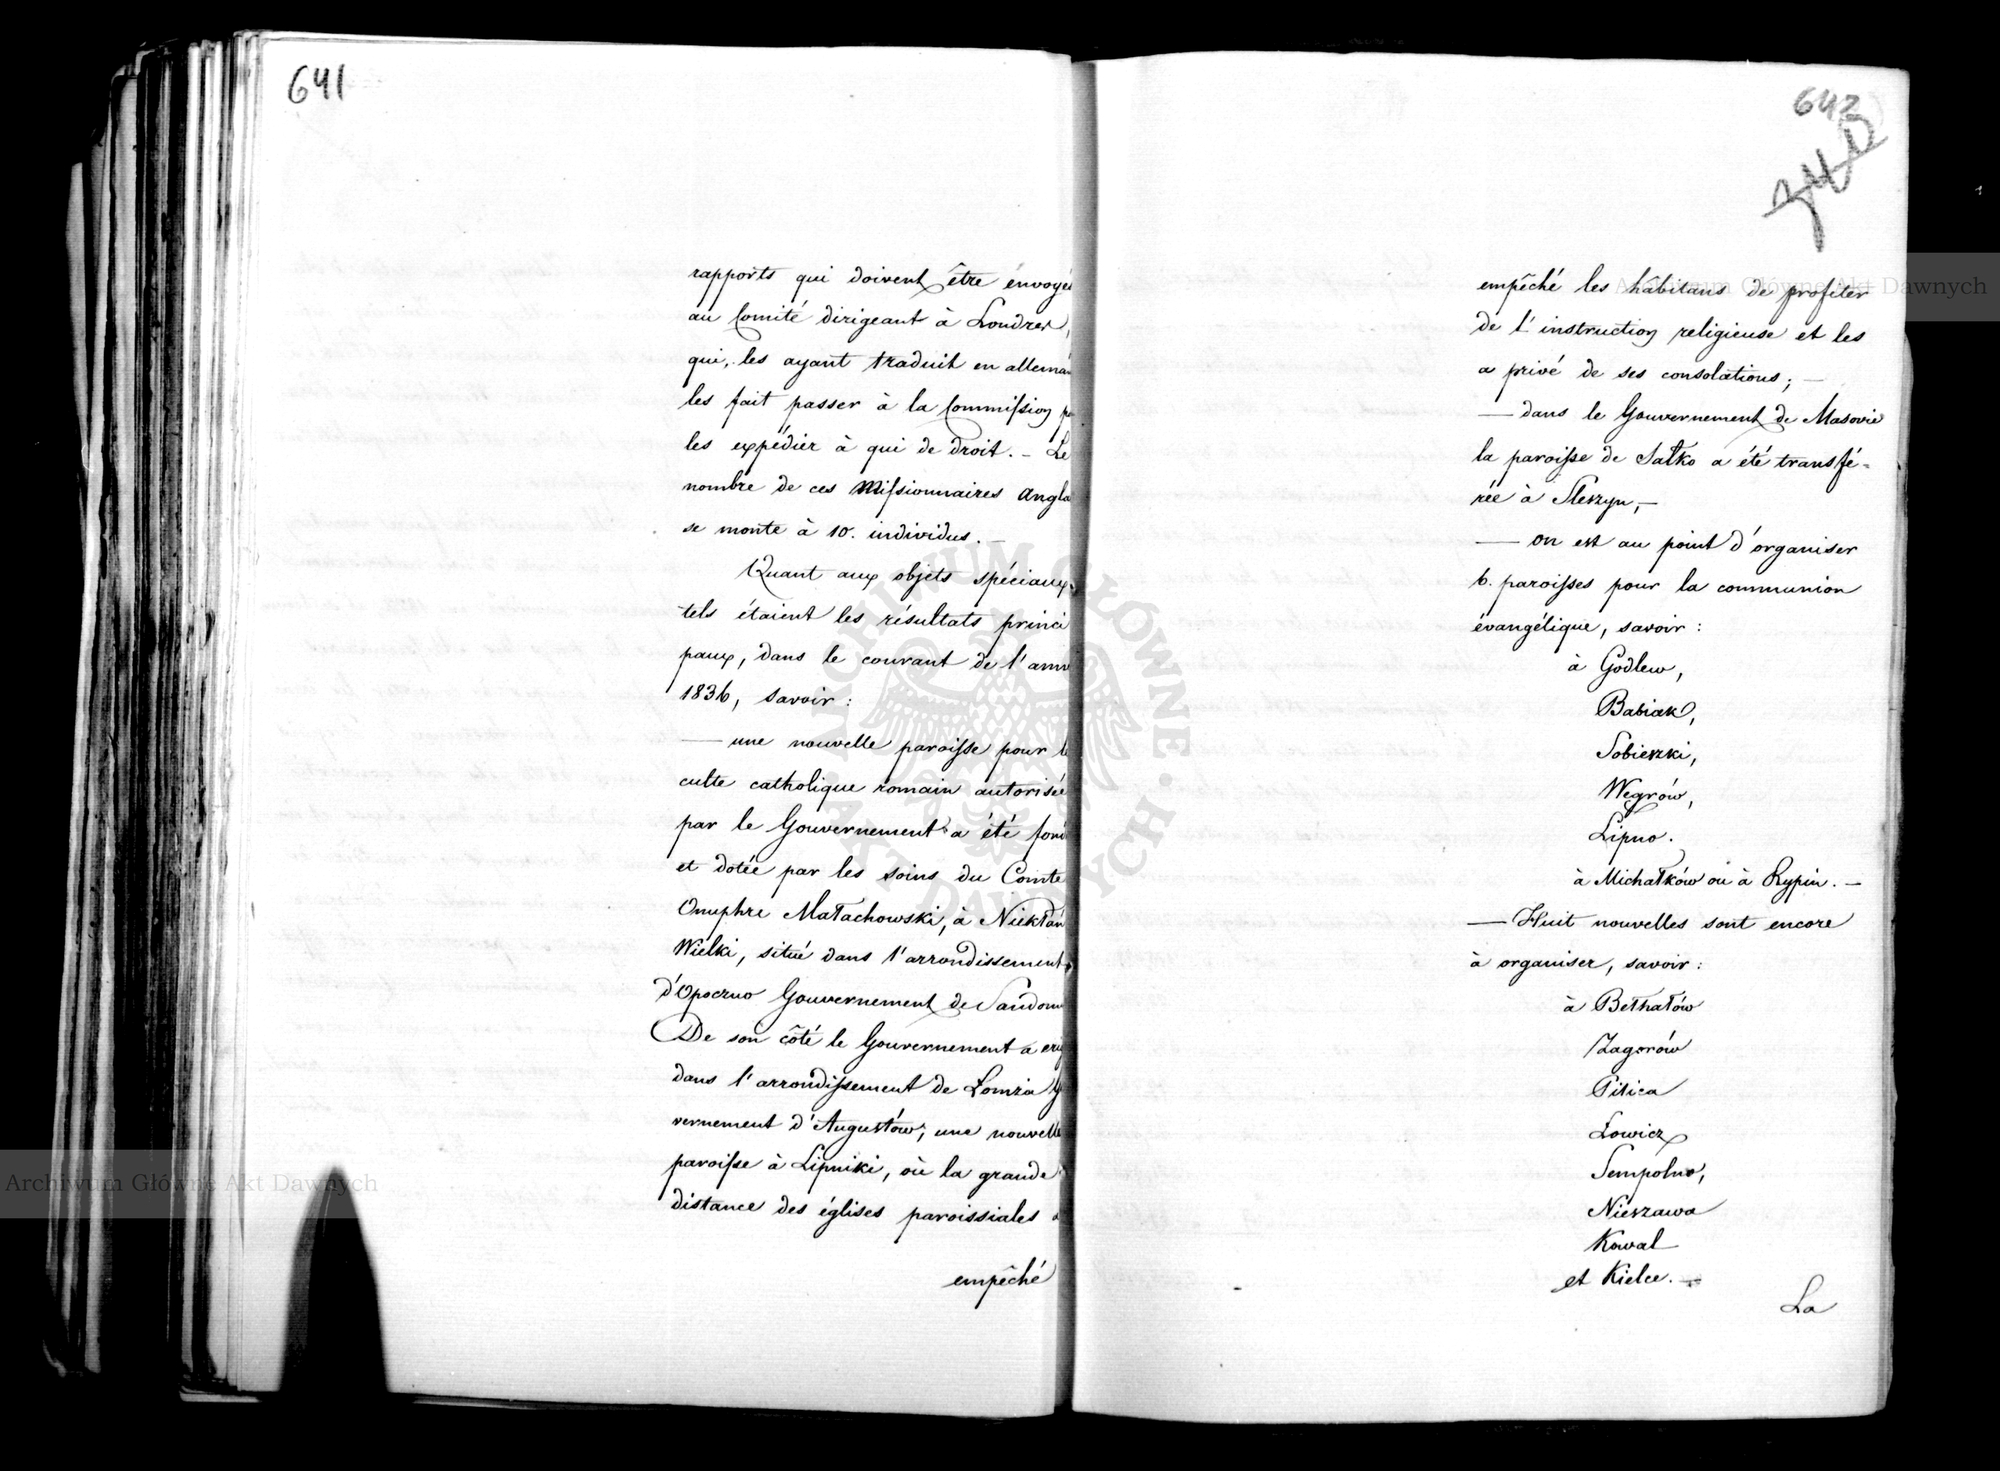 641
rapports qui doivent être envoyés
au Comité dirigeant à Londres,
qui, les ayant traduit en alleman
les fait passer à la Commission
les expédier à qui de droit. – Le
nombre de ces Missionnaires Angla
se monte à 10. individus. —
Quant aux objets spéciaux,
tels étaient les résultats princi
paux, dans le courant de l'ann
1836, savoir :
— une nouvelle paroisse pour l
culte catholique romain autorisée
par le Gouvernement a été fond
et dotée par les soins du Comte
Onuphre Małachowski, à Niekłan
Wielki, situé dans l'arrondissement
d'Opoczno Gouvernement de Sandom
De son côté le Gouvernement a erig
dans l'arrondissement de Lomza G
vernement d'Augustów, une nouvelle
paroisse à Lipniki, où la grande
distance des églises paroissiales a
empêché
642
740
empêché les hâbitans de profiter
de l'instruction religieuse et les
a privé de ses consolations; —
— dans le Gouvernement de Masovie
la paroisse de Sałko a été transfé=
rée à Sleszyn, —
— on est au point d'organiser
6. paroisses pour la communion
évangélique, savoir :
à Godlew,
Babiak,
Sobieszki,
Węgrów,
Lipno.
à Michałków ou à Rypin. —
— Huit nouvelles sont encore
à organiser, savoir :
à Bełhałów
Zagorów
Pilica
Łowicz
Sempolno,
Nieszawa
Kowal
et Kielce. —
La
Archiwum Główne Akt Dawnych
Archiwum Główne Akt Dawnych
ARCHIWUM GŁÓWNE · AKT DAWNYCH ·